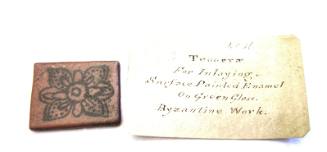 Tesserae
For Inlaying.
Surface Painted Enamel
On Green Glass.
Byzantine Work.